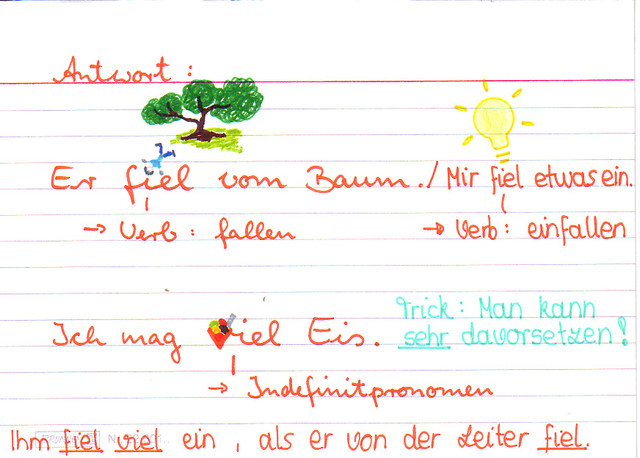 Antwort :
Er fiel vom Baum. / Mir fiel etwas ein.
→ Verb : fallen → Verb : einfallen
Trick : Man kann
Ich mag viel Eis. sehr davorsetzen!
→ Indefinitpronomen
Ihm fiel viel ein , als er von der Leiter fiel.